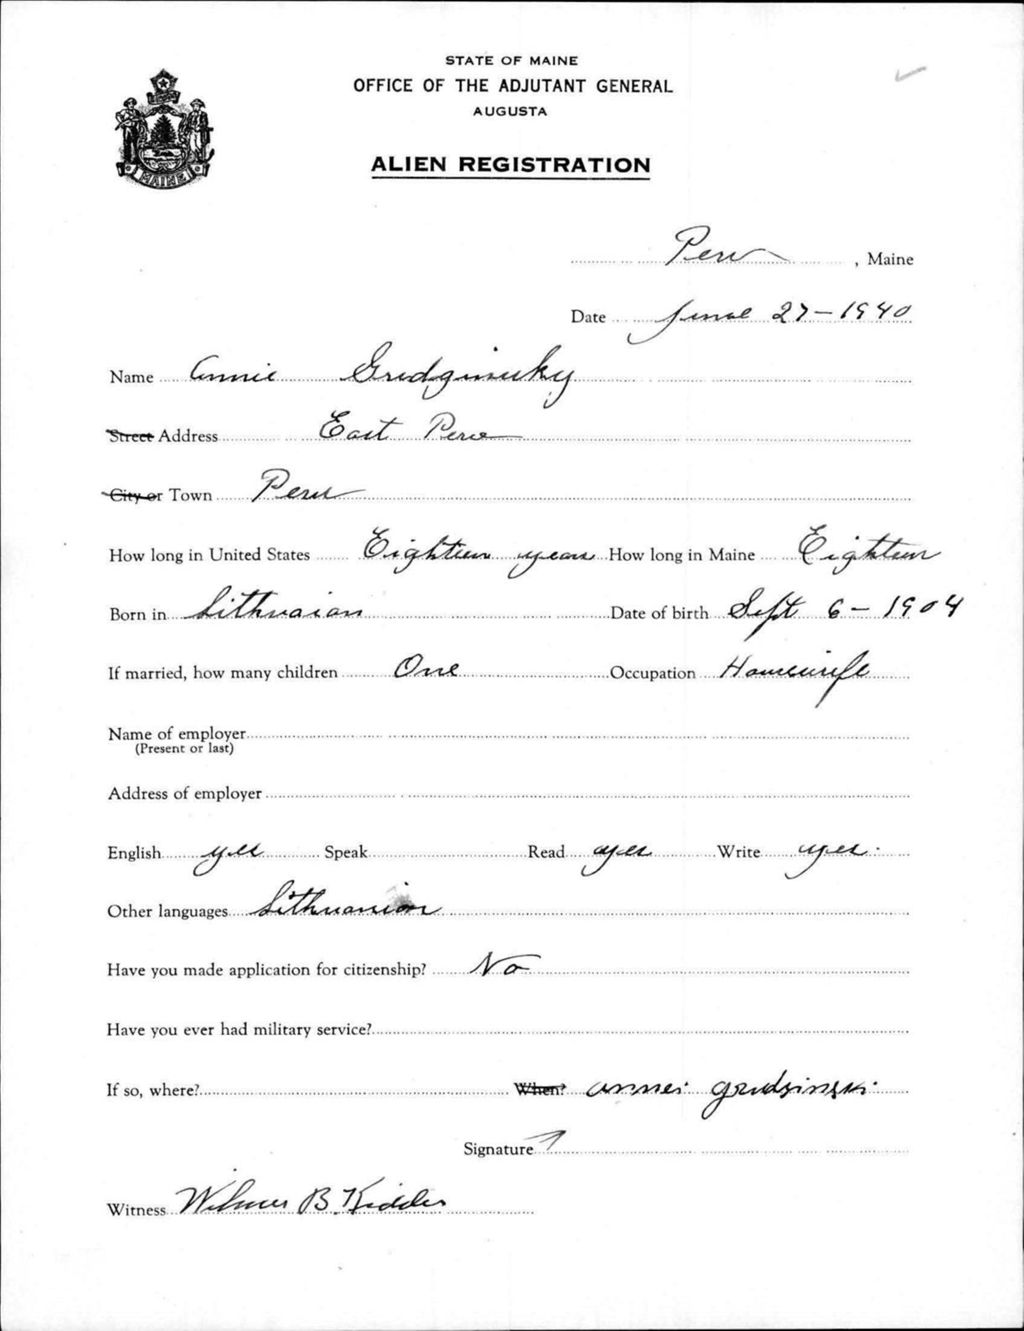 STATE OF MAINE
OFFICE OF THE ADJUTANT GENERAL
AUGUSTA
ALIEN REGISTRATION
MAINE
Peru, Maine
Date June 27-1940
Name Annie Grudginsky
Street Address East Peru
City or Town Peru
How long in United States Eighteen years How long in Maine Eighteen
Born in Lithuaian Date of birth Sept 6-1904
If married, how many children One Occupation Housewife
Name of employer
(Present or last)
Address of employer
English yes Speak Read yes Write yes
Other languages Lithuanian
Have you made application for citizenship? No
Have you ever had military service?
If so, where? When? annei grudzinski
Signature
Witness Wilmer B. Kidder